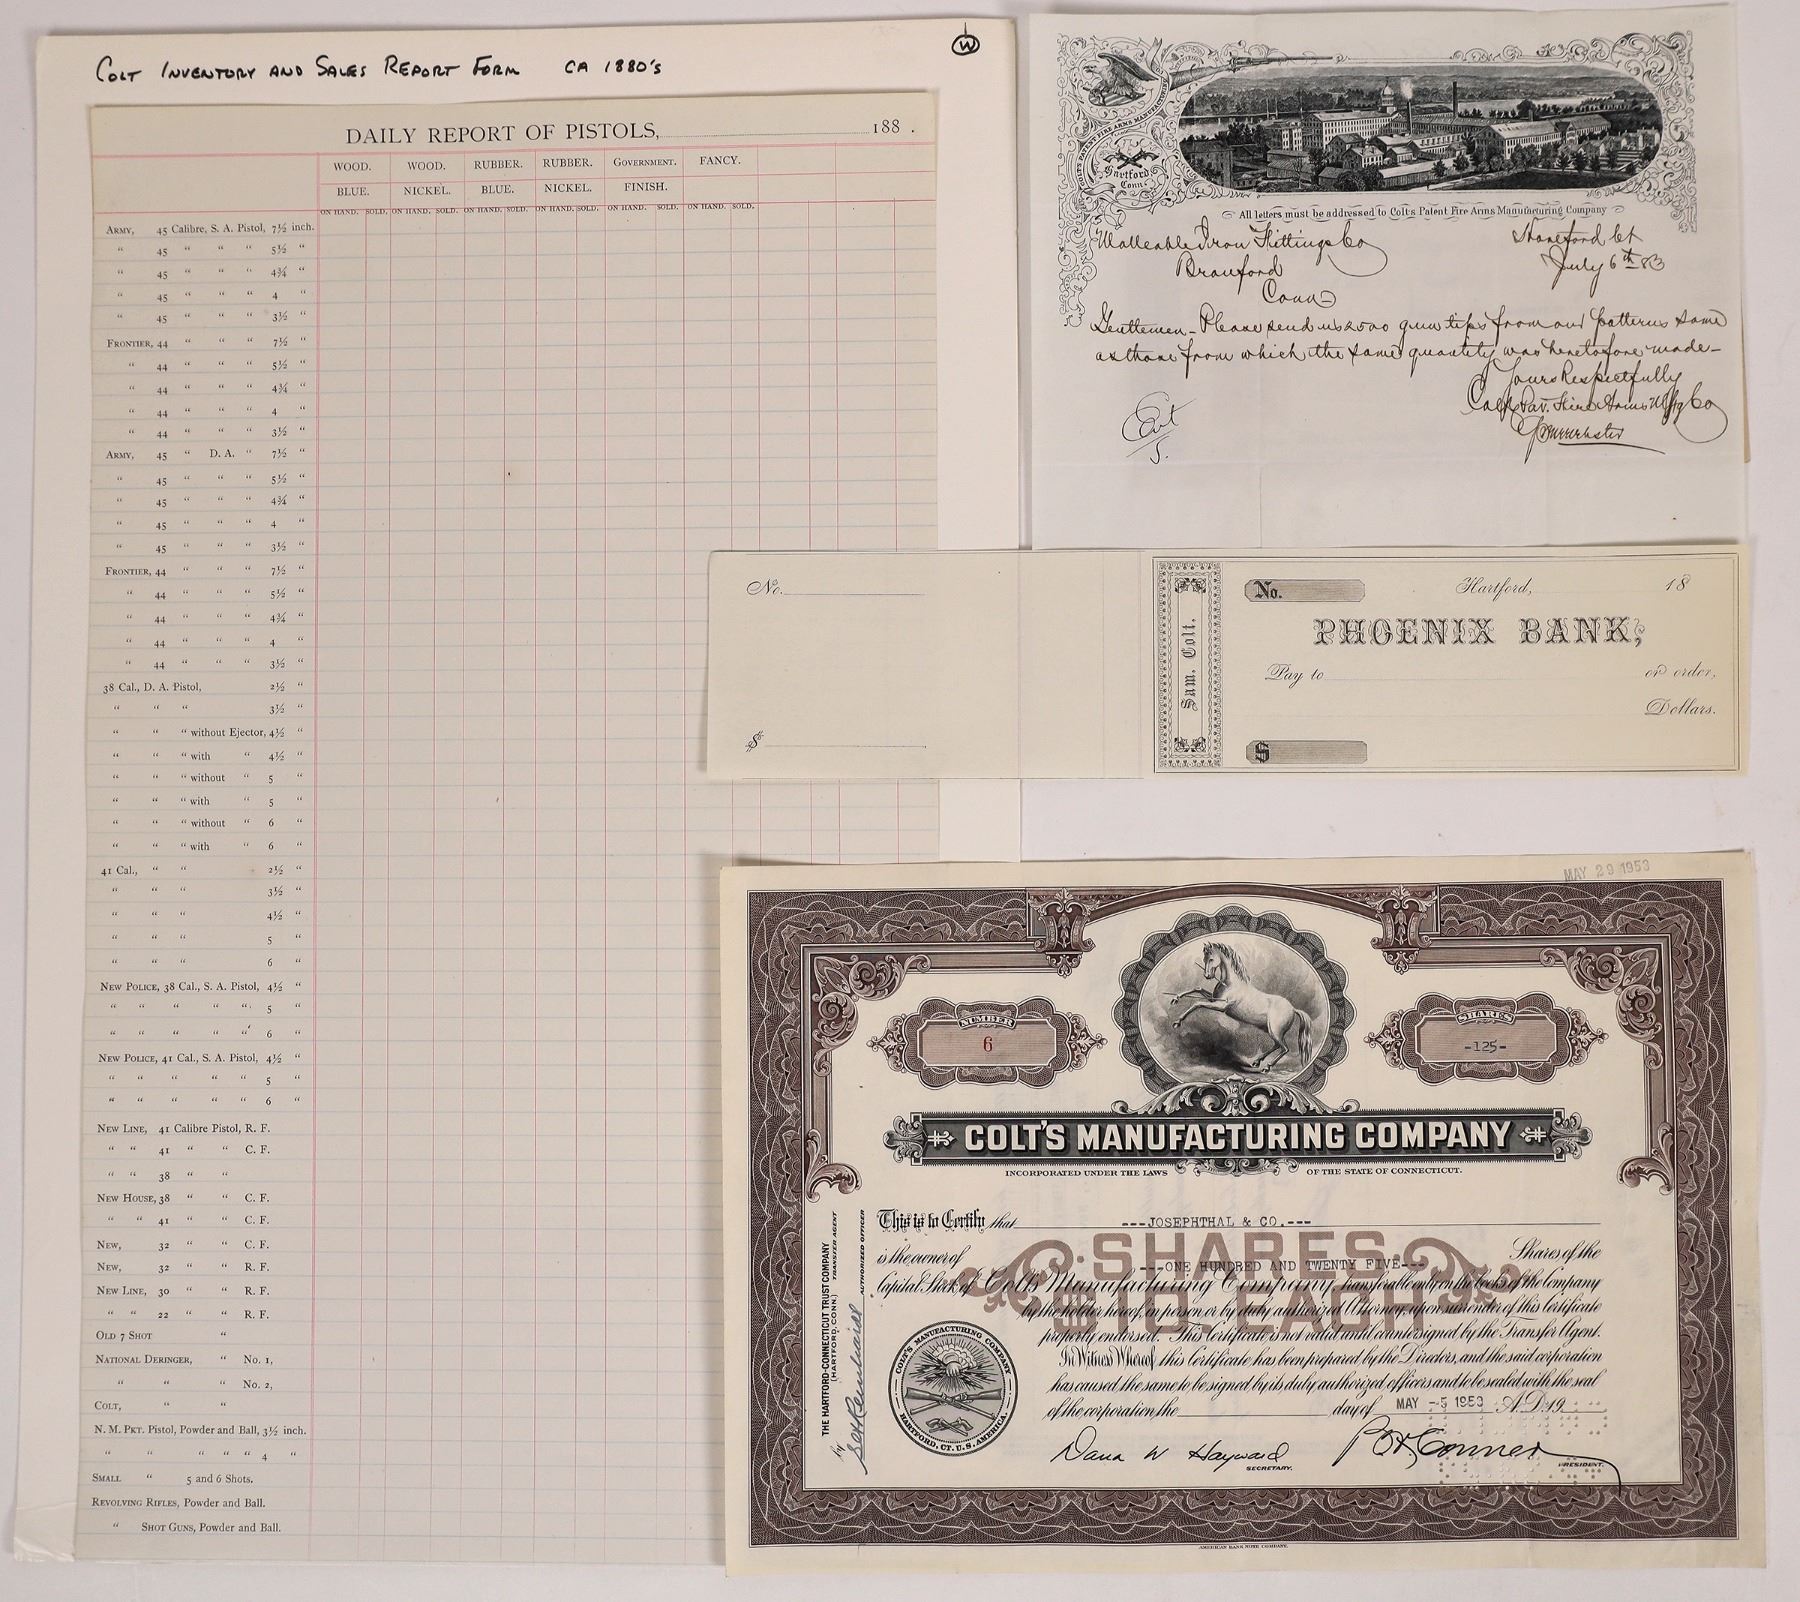 COLT INVENTORY AND SALES REPORT FORM CA 1880'S
W
DAILY REPORT OF PISTOLS, 188 .
WOOD. WOOD. RUBBER. RUBBER. GOVERNMENT. FANCY.
BLUE. NICKEL. BLUE. NICKEL. FINISH.
ON HAND. SOLD. ON HAND. SOLD. ON HAND. SOLD. ON HAND. SOLD. ON HAND. SOLD. ON HAND. SOLD.
ARMY, 45 Calibre, S. A. Pistol, 7½ inch.
" 45 " " " 5½ "
" 45 " " " 4¾ "
" 45 " " " 4 "
" 45 " " " 3½ "
FRONTIER, 44 " " " 7½ "
" 44 " " " 5½ "
" 44 " " " 4¾ "
" 44 " " " 4 "
" 44 " " " 3½ "
ARMY, 45 " D. A. " 7½ "
" 45 " " " 5½ "
" 45 " " " 4¾ "
" 45 " " " 4 "
" 45 " " " 3½ "
FRONTIER, 44 " " " 7½ "
" 44 " " " 5½ "
" 44 " " " 4¾ "
" 44 " " " 4 "
" 44 " " " 3½ "
38 Cal., D. A. Pistol, 2½ "
" " " 3½ "
" " " without Ejector, 4½ "
" " " with " 4½ "
" " " without " 5 "
" " " with " 5 "
" " " without " 6 "
" " " with " 6 "
41 Cal., " " 2½ "
" " " 3½ "
" " " 4½ "
" " " 5 "
" " " 6 "
NEW POLICE, 38 Cal., S. A. Pistol, 4½ "
" " " " " 5 "
" " " " " 6 "
NEW POLICE, 41 Cal., S. A. Pistol, 4½ "
" " " " " 5 "
" " " " " 6 "
NEW LINE, 41 Calibre Pistol, R. F.
" " 41 " " C. F.
" " 38 " "
NEW HOUSE, 38 " " C. F.
" " 41 " " C. F.
NEW, 32 " " C. F.
NEW, 32 " " R. F.
NEW LINE, 30 " " R. F.
" " 22 " " R. F.
OLD 7 SHOT "
NATIONAL DERINGER, " No. 1,
" " " No. 2,
COLT, " "
N. M. PKT. Pistol, Powder and Ball, 3½ inch.
" " " " " 4 "
SMALL " 5 and 6 Shots.
REVOLVING RIFLES, Powder and Ball.
" SHOT GUNS, Powder and Ball.
COLT'S PATENT FIRE ARMS MANUFACTURING COMPANY
Hartford
Conn.
All letters must be addressed to Colt's Patent Fire Arms Manufacturing Company
Malleable Iron Fittings Co Hartford Ct
Branford July 6th 83
Conn
Gentlemen - Please send us 2500 gun tips from our patterns same
as those from which the same quantity was heretofore made -
Yours Respectfully
Colts Pat. Fire Arms Mfg Co
No.
$
Sam. Colt.
No. Hartford, 18
PHOENIX BANK,
Pay to or order,
Dollars.
$
MAY 29 1953
NUMBER
6
SHARES
-125-
COLT'S MANUFACTURING COMPANY
INCORPORATED UNDER THE LAWS OF THE STATE OF CONNECTICUT.
This is to Certify that ---JOSEPHTHAL & CO.---
is the owner of ---ONE HUNDRED AND TWENTY FIVE--- Shares of the
Capital Stock of Colt's Manufacturing Company, transferable only on the books of the Company
by the holder hereof, in person or by duly authorized Attorney, upon surrender of this Certificate
properly endorsed. This Certificate is not valid until countersigned by the Transfer Agent.
In Witness Whereof this Certificate has been prepared by the Directors, and the said corporation
has caused the same to be signed by its duly authorized officers and to be sealed with the seal
of the corporation, the day of MAY -5 1953 A.D. 19
SHARES
$10. EACH
THE HARTFORD-CONNECTICUT TRUST COMPANY
(HARTFORD, CONN.) TRANSFER AGENT
by AUTHORIZED OFFICER
COLT'S MANUFACTURING COMPANY
HARTFORD, CT. U.S. AMERICA.
Dana W Hayward
SECRETARY.
PRESIDENT.
AMERICAN BANK NOTE COMPANY.